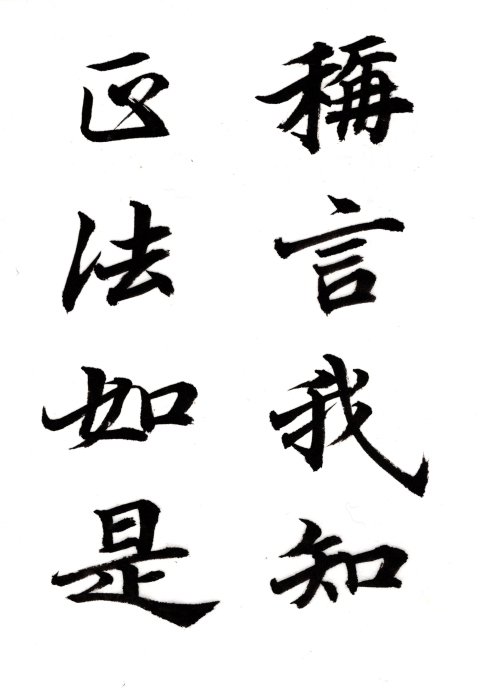 稱言我知
正法如是